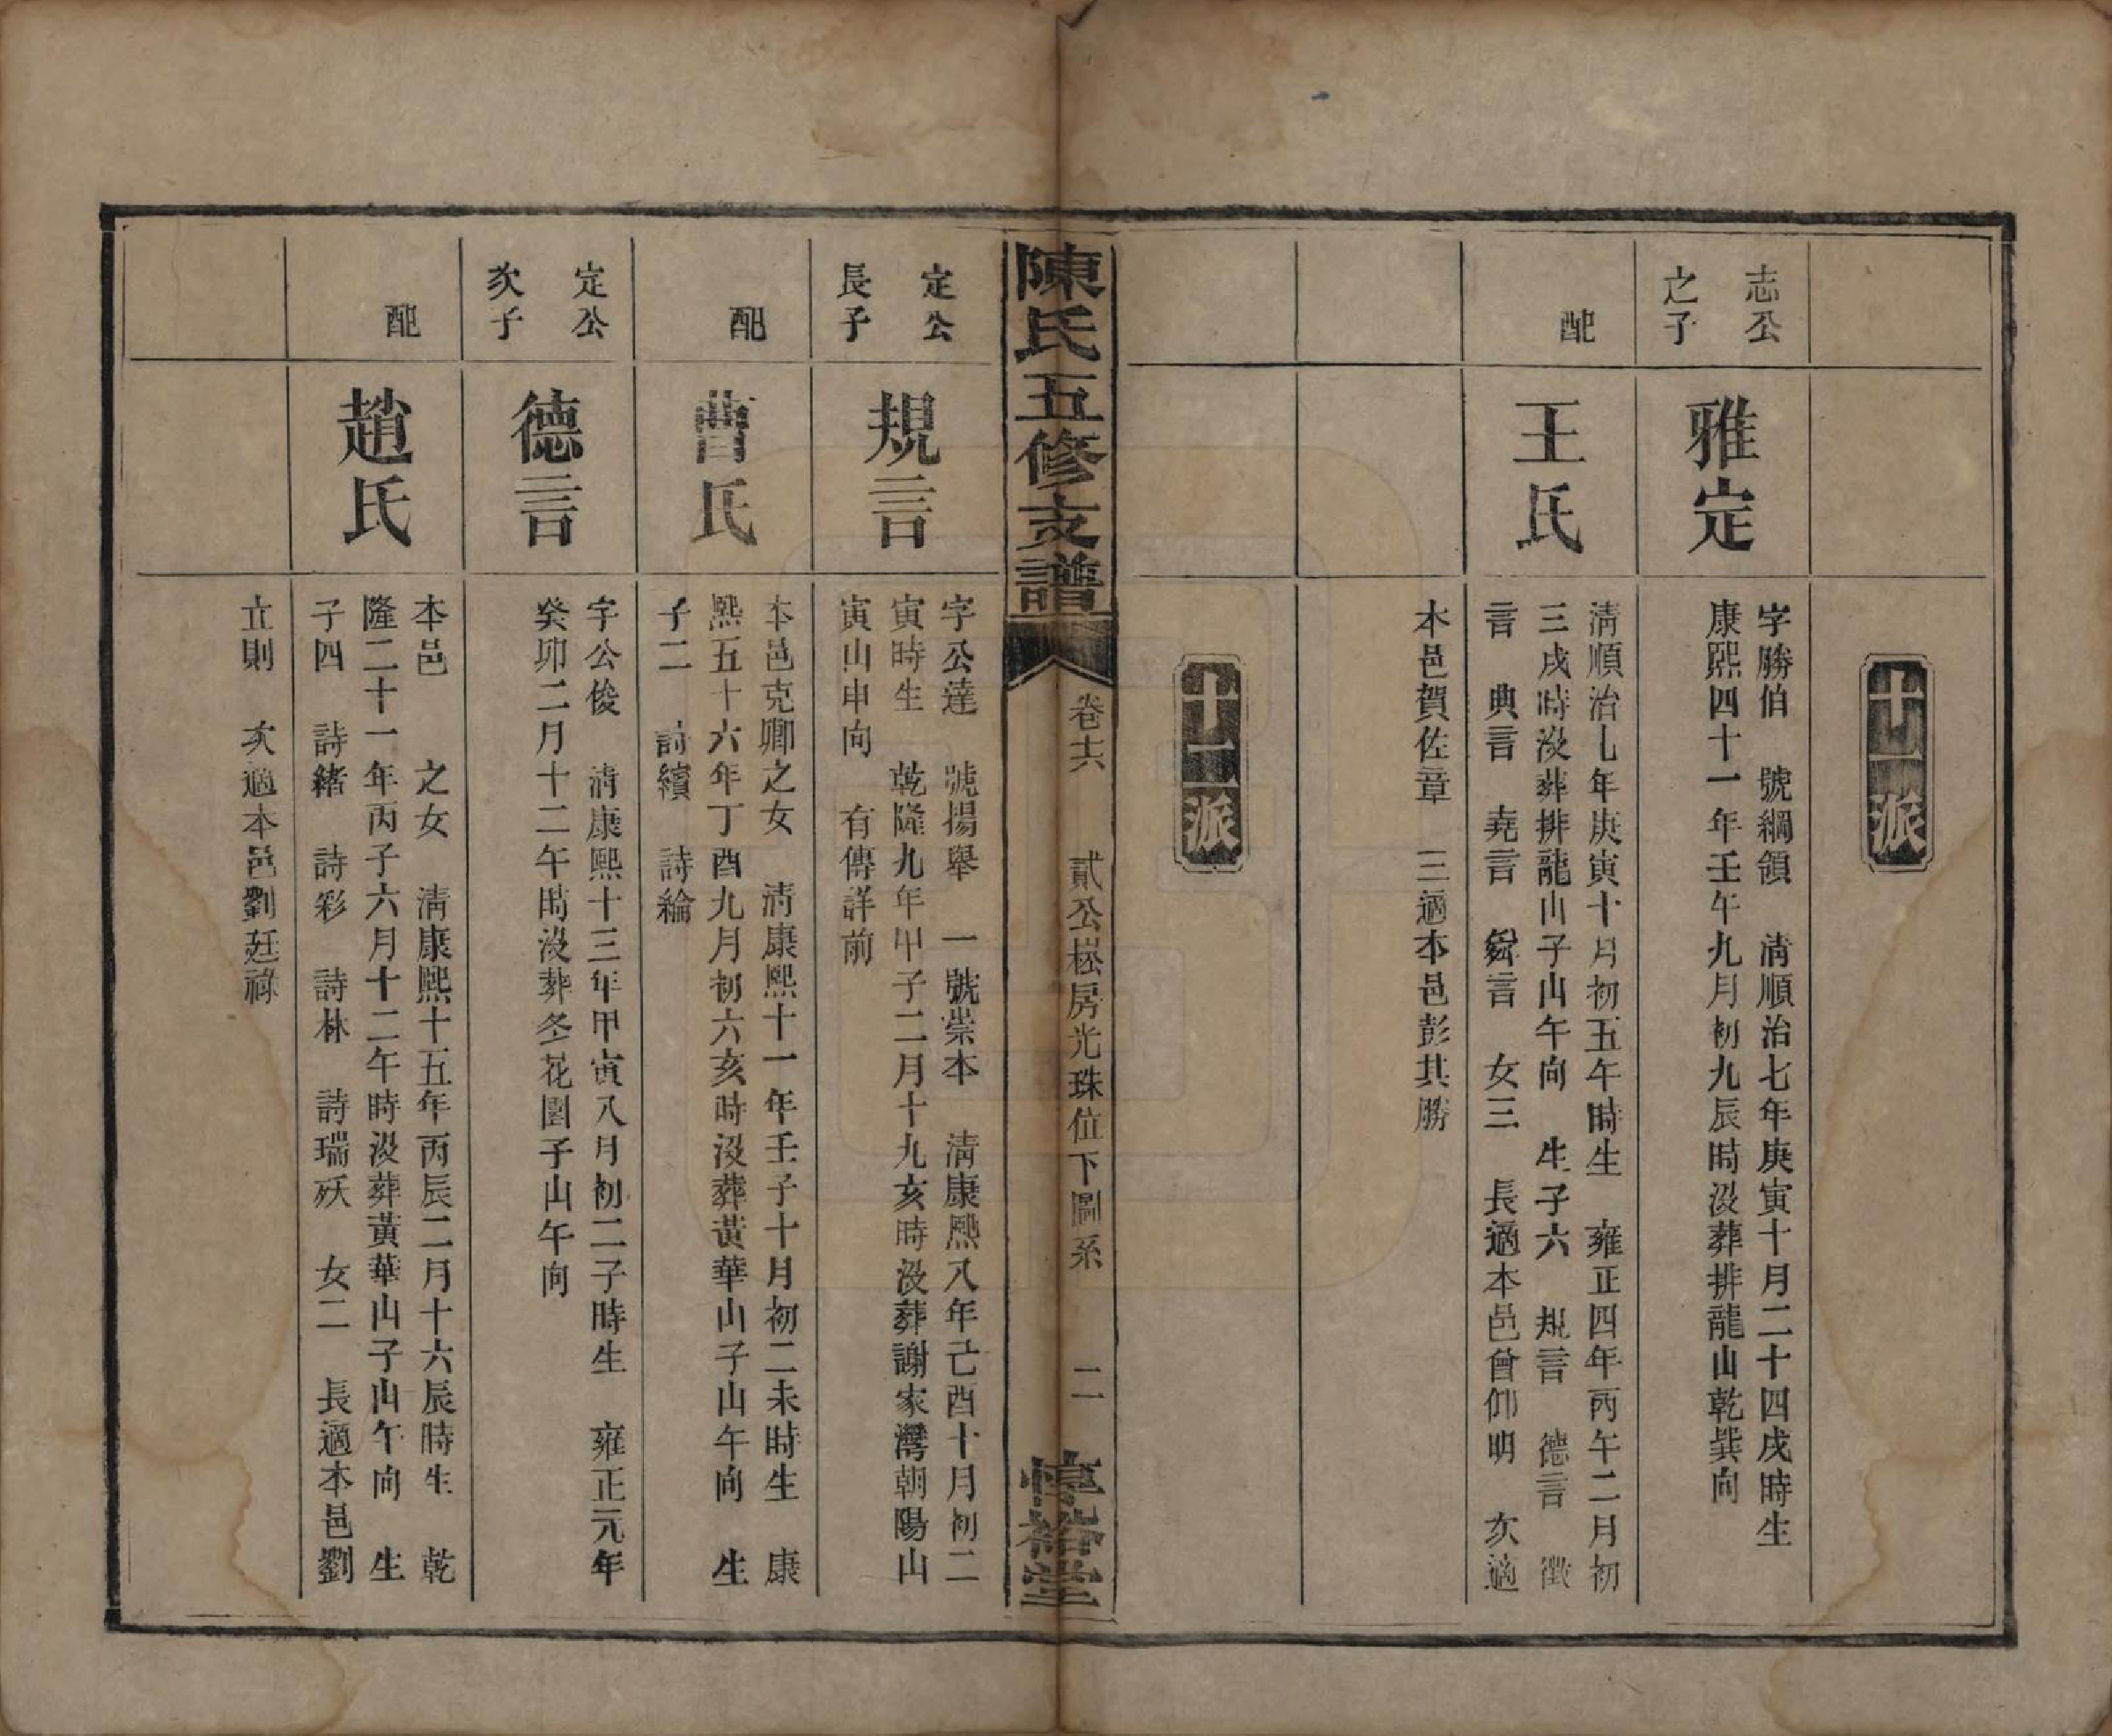 十一派
志公
之子
雅定
字勝伯 號綱領 清順治七年庚寅十月二十四戌時生
康熙四十一年壬午九月初九辰時沒葬排龍山乾巽向
配
王氏
清順治七年庚寅十月初五午時生 雍正四年丙午二月初
三戌時沒葬排龍山子山午向 生子六 規言 德言 徵
言 典言 堯言 舜言 女三 長適本邑曾仰明 次適
本邑賀佐章 三適本邑彭其勝
十二派
陳氏五修支譜
卷十六 貳公崧房光珠位下圖系 二
惇裕堂
定公
長子
規言
字公達 號揚舉 一號崇本 清康熙八年己酉十月初二
寅時生 乾隆九年甲子二月十九亥時沒葬謝家灣朝陽山
寅山申向 有傳詳前
配
曾氏
本邑克卿之女 清康熙十一年壬子十月初二未時生 康
熙五十六年丁酉九月初六亥時沒葬黃華山子山午向 生
子二 詩纘 詩綸
定公
次子
德言
字公俊 清康熙十三年甲寅八月初二子時生 雍正元年
癸卯二月十二午時沒葬冬花園子山午向
配
趙氏
本邑 之女 清康熙十五年丙辰二月十六辰時生 乾
隆二十一年丙子六月十二午時沒葬黃華山子山午向 生
子四 詩緒 詩彩 詩林 詩瑞殀 女二 長適本邑劉
立則 次適本邑劉廷祿